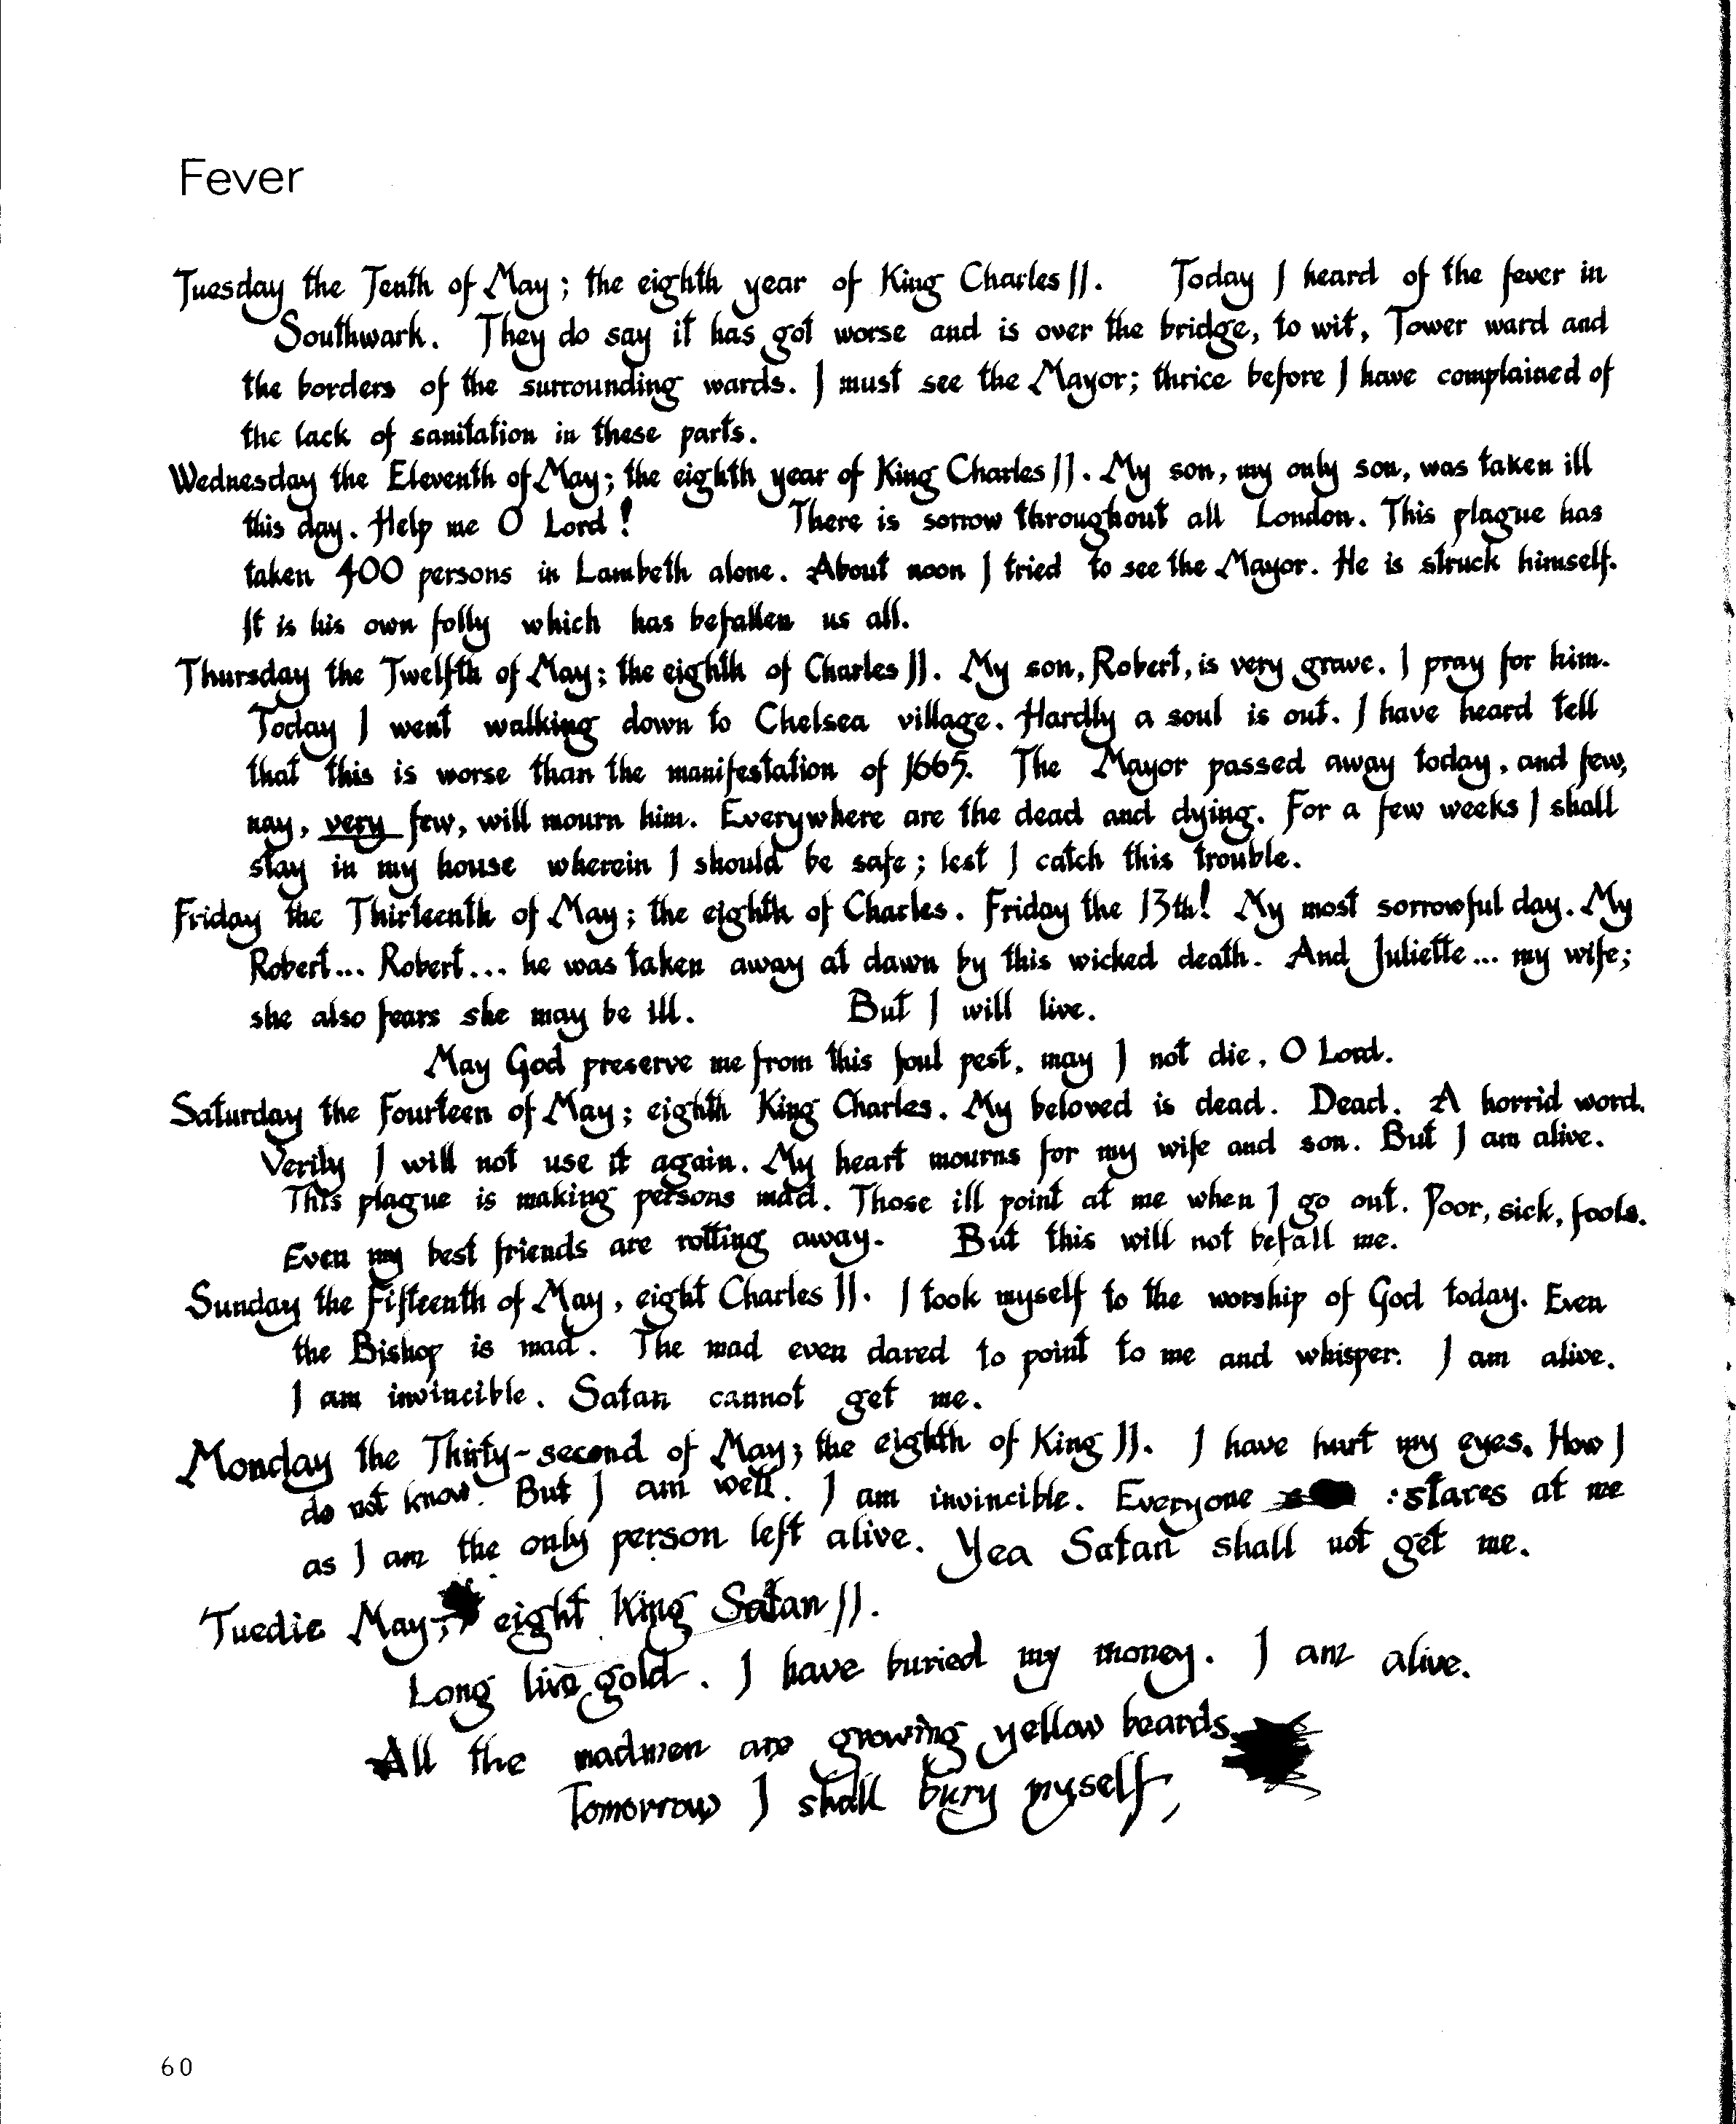 Fever
Tuesday the Tenth of May; the eighth year of King Charles II. Today I heard of the fever in
Southwark. They do say it has got worse and is over the bridge, to wit, Tower ward and
the borders of the surrounding wards. I must see the Mayor; thrice before I have complained of
the lack of sanitation in these parts.
Wednesday the Eleventh of May; the eighth year of King Charles II. My son, my only son, was taken ill
this day. Help me O Lord! There is sorrow throughout all London. This plague has
taken 400 persons in Lambeth alone. About noon I tried to see the Mayor. He is struck himself.
It is his own folly which has befallen us all.
Thursday the Twelfth of May; the eighth of Charles II. My son, Robert, is very grave. I pray for him.
Today I went walking down to Chelsea village. Hardly a soul is out. I have heard tell
that this is worse than the manifestation of 1665. The Mayor passed away today, and few,
nay, very few, will mourn him. Everywhere are the dead and dying. For a few weeks I shall
stay in my house wherein I should be safe; lest I catch this trouble.
Friday the Thirteenth of May; the eighth of Charles. Friday the 13th! My most sorrowful day. My
Robert... Robert... he was taken away at dawn by this wicked death. And Juliette... my wife;
she also fears she may be ill. But I will live.
May God preserve me from this foul pest, may I not die, O Lord.
Saturday the Fourteen of May; eighth King Charles. My beloved is dead. Dead. A horrid word.
Verily I will not use it again. My heart mourns for my wife and son. But I am alive.
This plague is making persons mad. Those ill point at me when I go out. Poor, sick, fools.
Even my best friends are rotting away. But this will not befall me.
Sunday the Fifteenth of May, eight Charles II. I took myself to the worship of God today. Even
the Bishop is mad. The mad even dared to point to me and whisper. I am alive.
I am invincible. Satan cannot get me.
Monday the Thirty-second of May; the eighth of King II. I have hurt my eyes. How I
do not know. But I am well. I am invincible. Everyone :stares at me
as I am the only person left alive. Yea Satan shall not get me.
Tuedie May; eight King Satan II.
Long live gold. I have buried my money. I am alive.
All the madmen are growing yellow beards.
Tomorrow I shall bury myself,
60